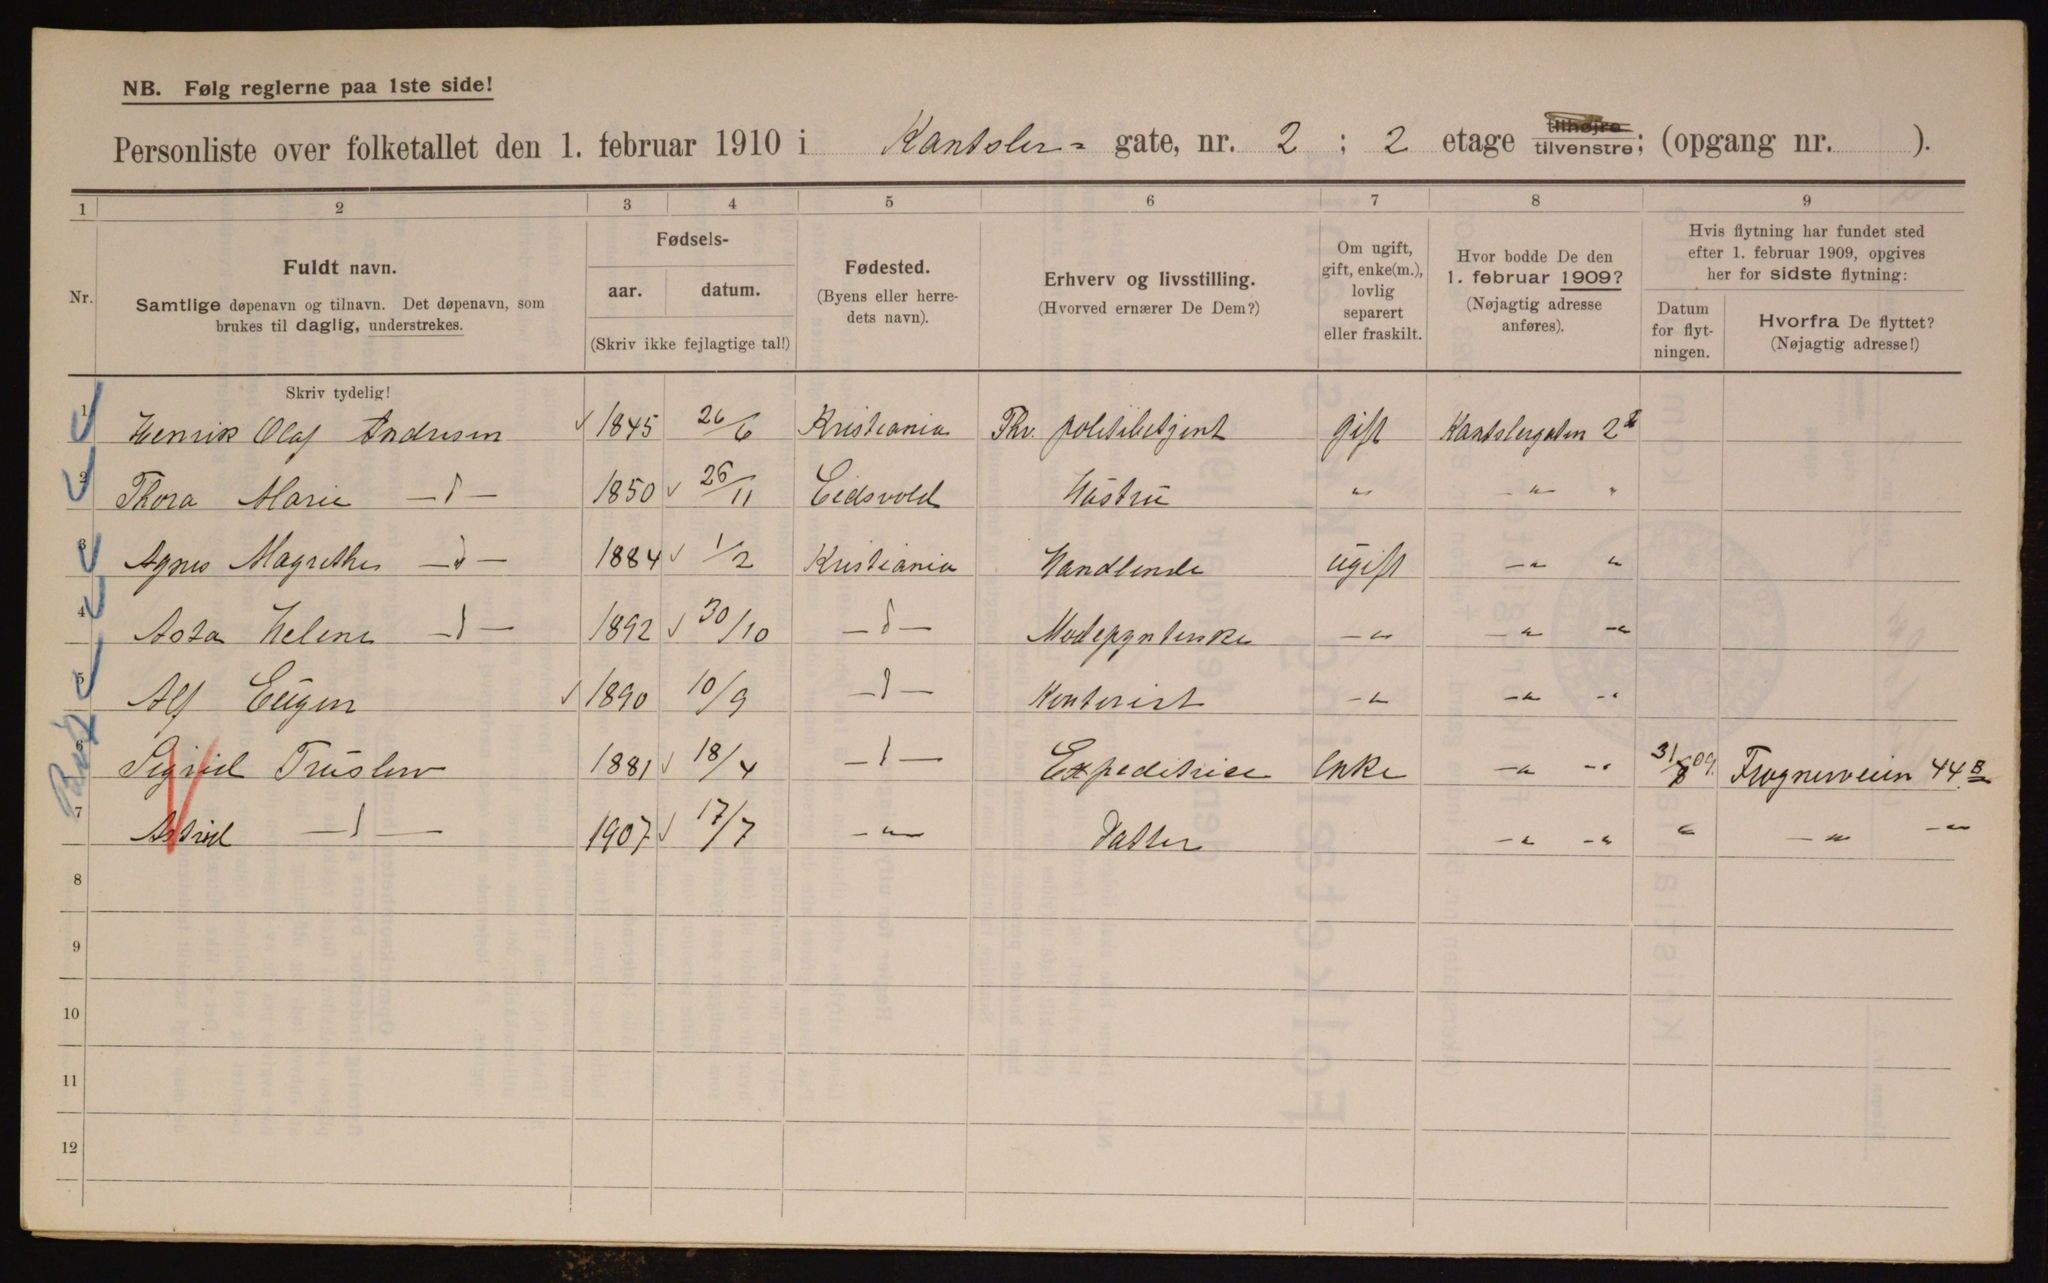 NB. Følg reglerne paa 1ste side!
Personliste over folketallet den 1. februar 1910 i Kantsler- gate, nr. 2 ; 2 etage tilhøjre tilvenstre; (opgang nr. ).
1 2 3 4 5 6 7 8 9
Nr.
Fuldt navn.
Samtlige døpenavn og tilnavn. Det døpenavn, som
brukes til daglig, understrekes.
Skriv tydelig!
Fødsels-
aar. datum.
(Skriv ikke fejlagtige tal!)
Fødested.
(Byens eller herre-
dets navn).
Erhverv og livsstilling.
(Hvorved ernærer De Dem?)
Om ugift,
gift, enke(m.),
lovlig
separert
eller fraskilt.
Hvor bodde De den
1. februar 1909?
(Nøjagtig adresse
anføres).
Hvis flytning har fundet sted
efter 1. februar 1909, opgives
her for sidste flytning:
Datum
for flyt-
ningen.
Hvorfra De flyttet?
(Nøjagtig adresse!)
1 Henrik Olaf Andresen 1845 26/6 Kristiania Fhv. politibetjent gift Kantslergaten 2
2 Thora Marie —〃— 1850 26/11 Eidsvold Hustru 〃 —〃— 〃
3 Agnes Magrethe —〃— 1884 1/2 Kristiania Handlende ugift —〃 〃
4 Asta Helene —〃— 1892 30/10 —〃— Modepynterske —〃 —〃 —〃
5 Alf Eugen 1890 10/9 —〃— Kontorist —〃 —〃 —〃
6 Sigrid Truslew 1881 18/4 —〃— Expeditrice Enke —〃 —〃 31/8 09. Frognerveien 44 B
7 Astrid —〃— 1907 17/7 —〃— Datter —〃 —〃 〃 —〃 —〃
8
9
10
11
12